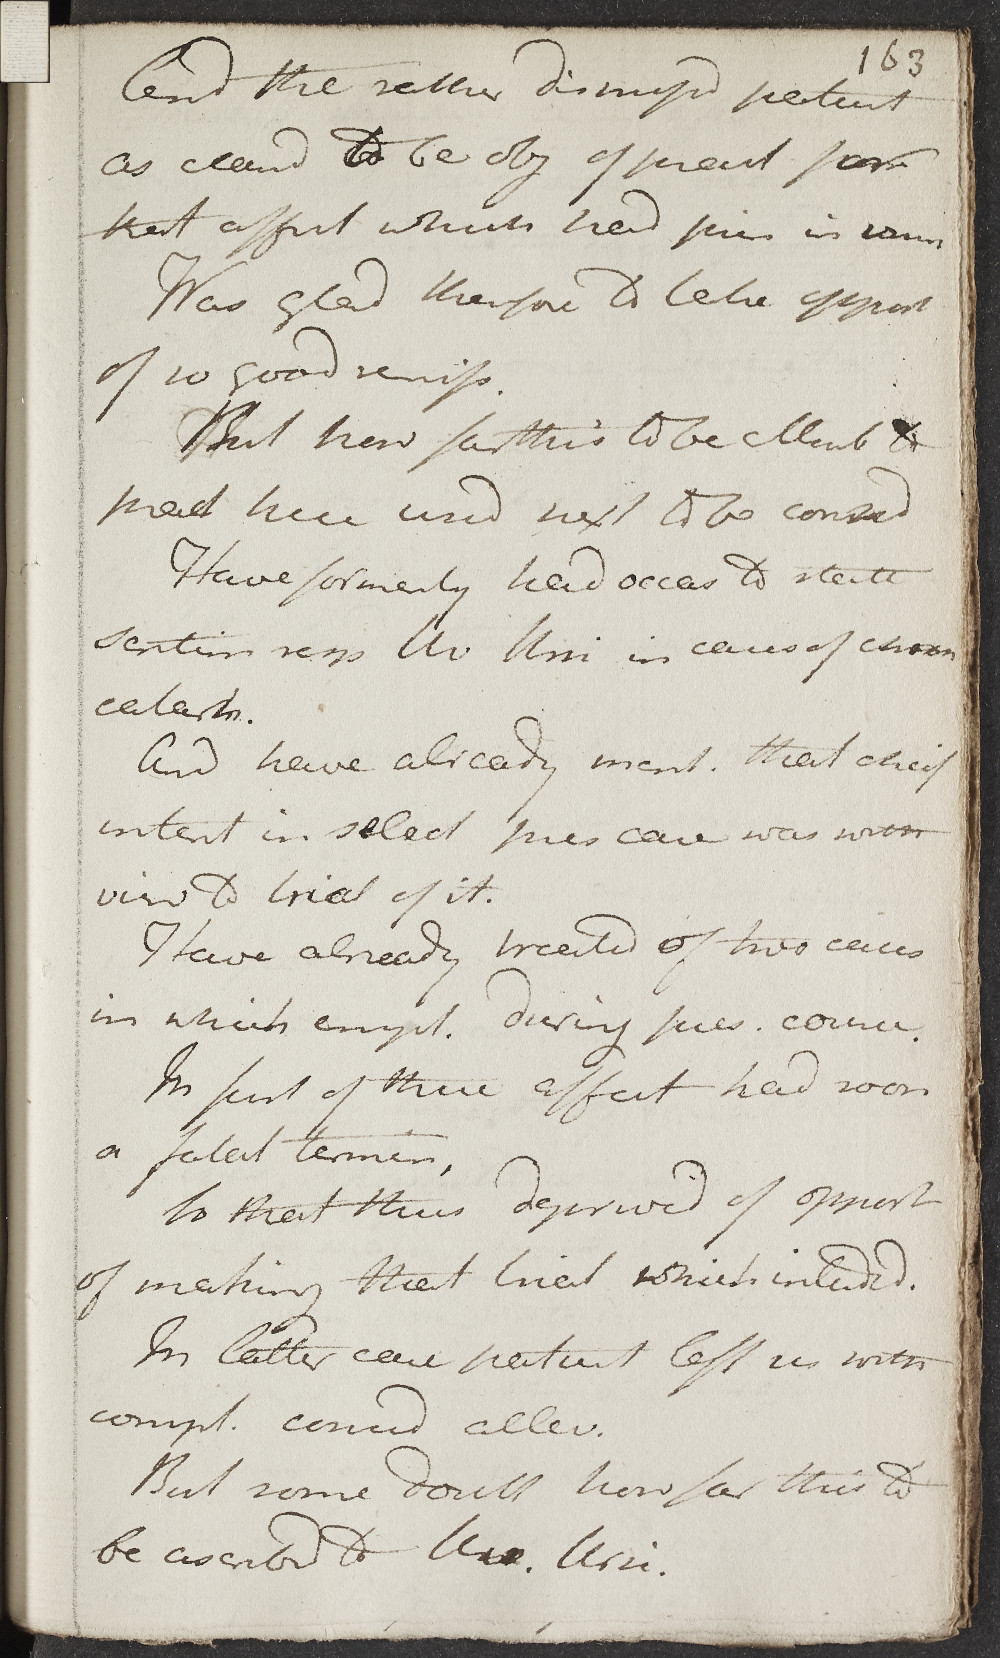 163
And the rather dismissd patient
as ceasd to be obj of pract for
that affect which had pres in view
Was glad therefore to take opport
of so good remiss.
But how far this to be attrib to
pract here used next to be consid
Have formerly had occas to state
sentim resp Uv Ursi in cases of chron
catarh.
And have already ment. that chief
intent in select pres case was with
view to trial of it.
Have already treated of two cases
in which empl. during pres. course.
In first of these affect had soon
a fatal termin,
So that thus deprived of opport
of making that trial which intended.
In latter case patient left us with
compl. consid allev.
But some doubt how far this to
be ascribd to Uv. Ursi.